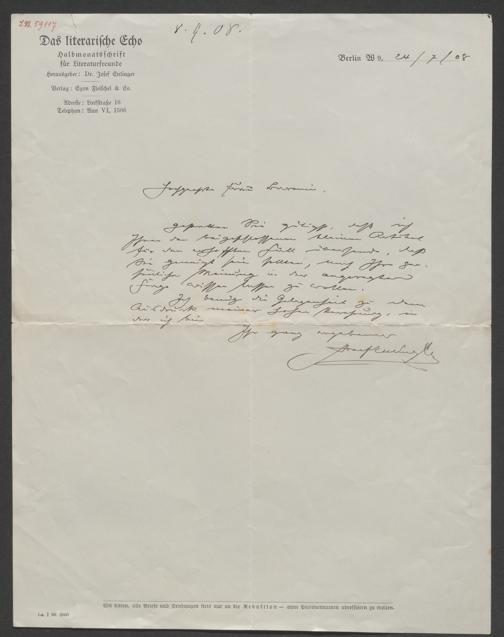 I.N. 59117
8. 9. 08.
Das literarische Echo
Halbmonatsschrift
für Literaturfreunde
Herausgeber: Dr. Josef Ettlinger
Verlag: Egon Fleischel & Co.
Adresse: Linkstraße 16
Telephon: Amt VI, 1506
Berlin W 9, 24/7/08
Hochgeehrte Frau Baronin.
gestatten Sie gütigst, daß ich
Ihnen den beigeschlossenen kleinen Artikel
für den Fall übersende, daß
Sie geneigt sein sollten, uns Ihre per-
sönliche Meinung in der angeregten
Frage wissen lassen zu wollen.
Ich benütze die Gelegenheit zu dem
Ausdruck meiner hohen Verehrung, in
der ich bin
Ihr ganz ergebener
Wir bitten, alle Briefe und Sendungen stets nur an die Redaktion — ohne Personennamen adressieren zu wollen.